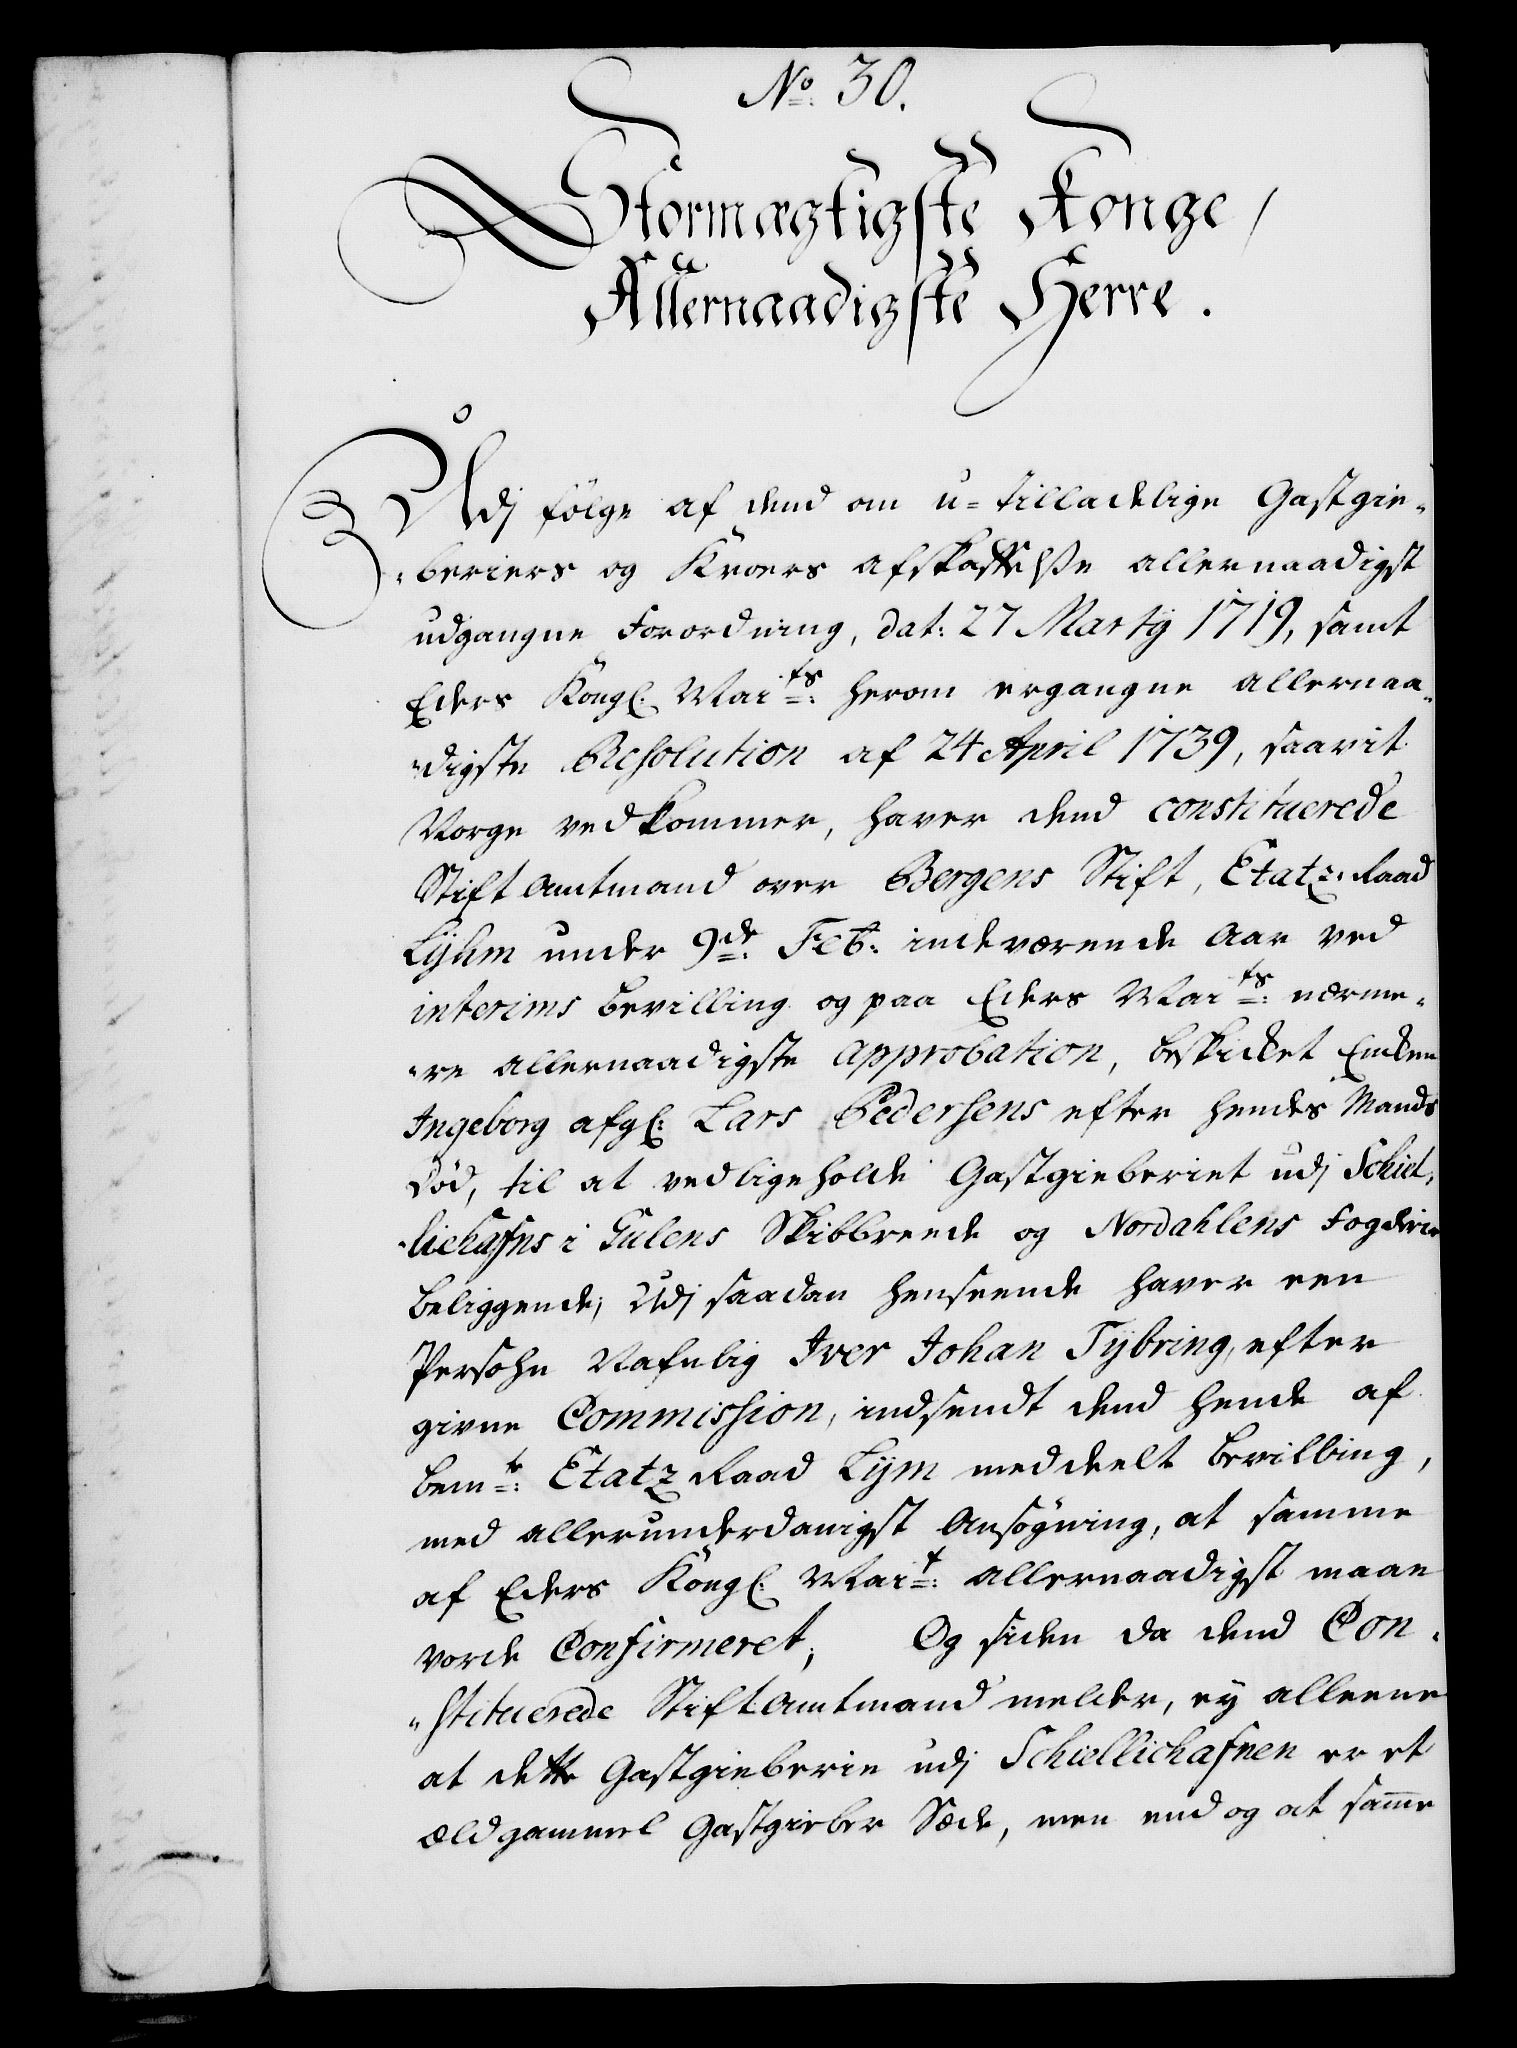 No 30.
Stormægtigste Konge,
Allernaadigste Herre.
Udj følge af dend om u-tilladelige Gastgie-
beriers og Kroers afskaffelsse allernaadigst
udgangne Forordning, dat: 27 Martij 1719, samt
Eders Kongl. Mai:ts herom ergangne allernaa-
digste Resolution af 24 April 1739, saavit
Norge vedkommer, haver dend constituerede
Stiftamtmand over Bergens Stift, Etatz-Raad
Lyhm under 9de Feb: indeværende Aar ved
interims bevilling og paa Eders Mai:ts nærme-
re allernaadigste approbation, beskicket Encken
Ingeborg afgl: Lars Pedersens efter hendes Mands
død, til at vedligeholde Gastgieberiet udj Schiel-
lichafns i Gulens Skibbrede og Nordahlens Fogderie
beliggende; Udj saadan henseende haver een
Persohn Nafnlig Iver Johan Tybring, efter
givne Commission, indsendt dend hende af
bem:te Etatz Raad Lijm meddeelt bevilling,
med allerunderdanigst Ansøgning, at samme
af Eders Kongl: Mai:t allernaadigst maae
vorde Confirmeret; Og siden da dend Con-
stituerede Stiftamtmand melder, ey alleene
at dette Gastgieberie udj Schiellichafnen er et
ældgammel Gastgieber Sæde, men end og at samme